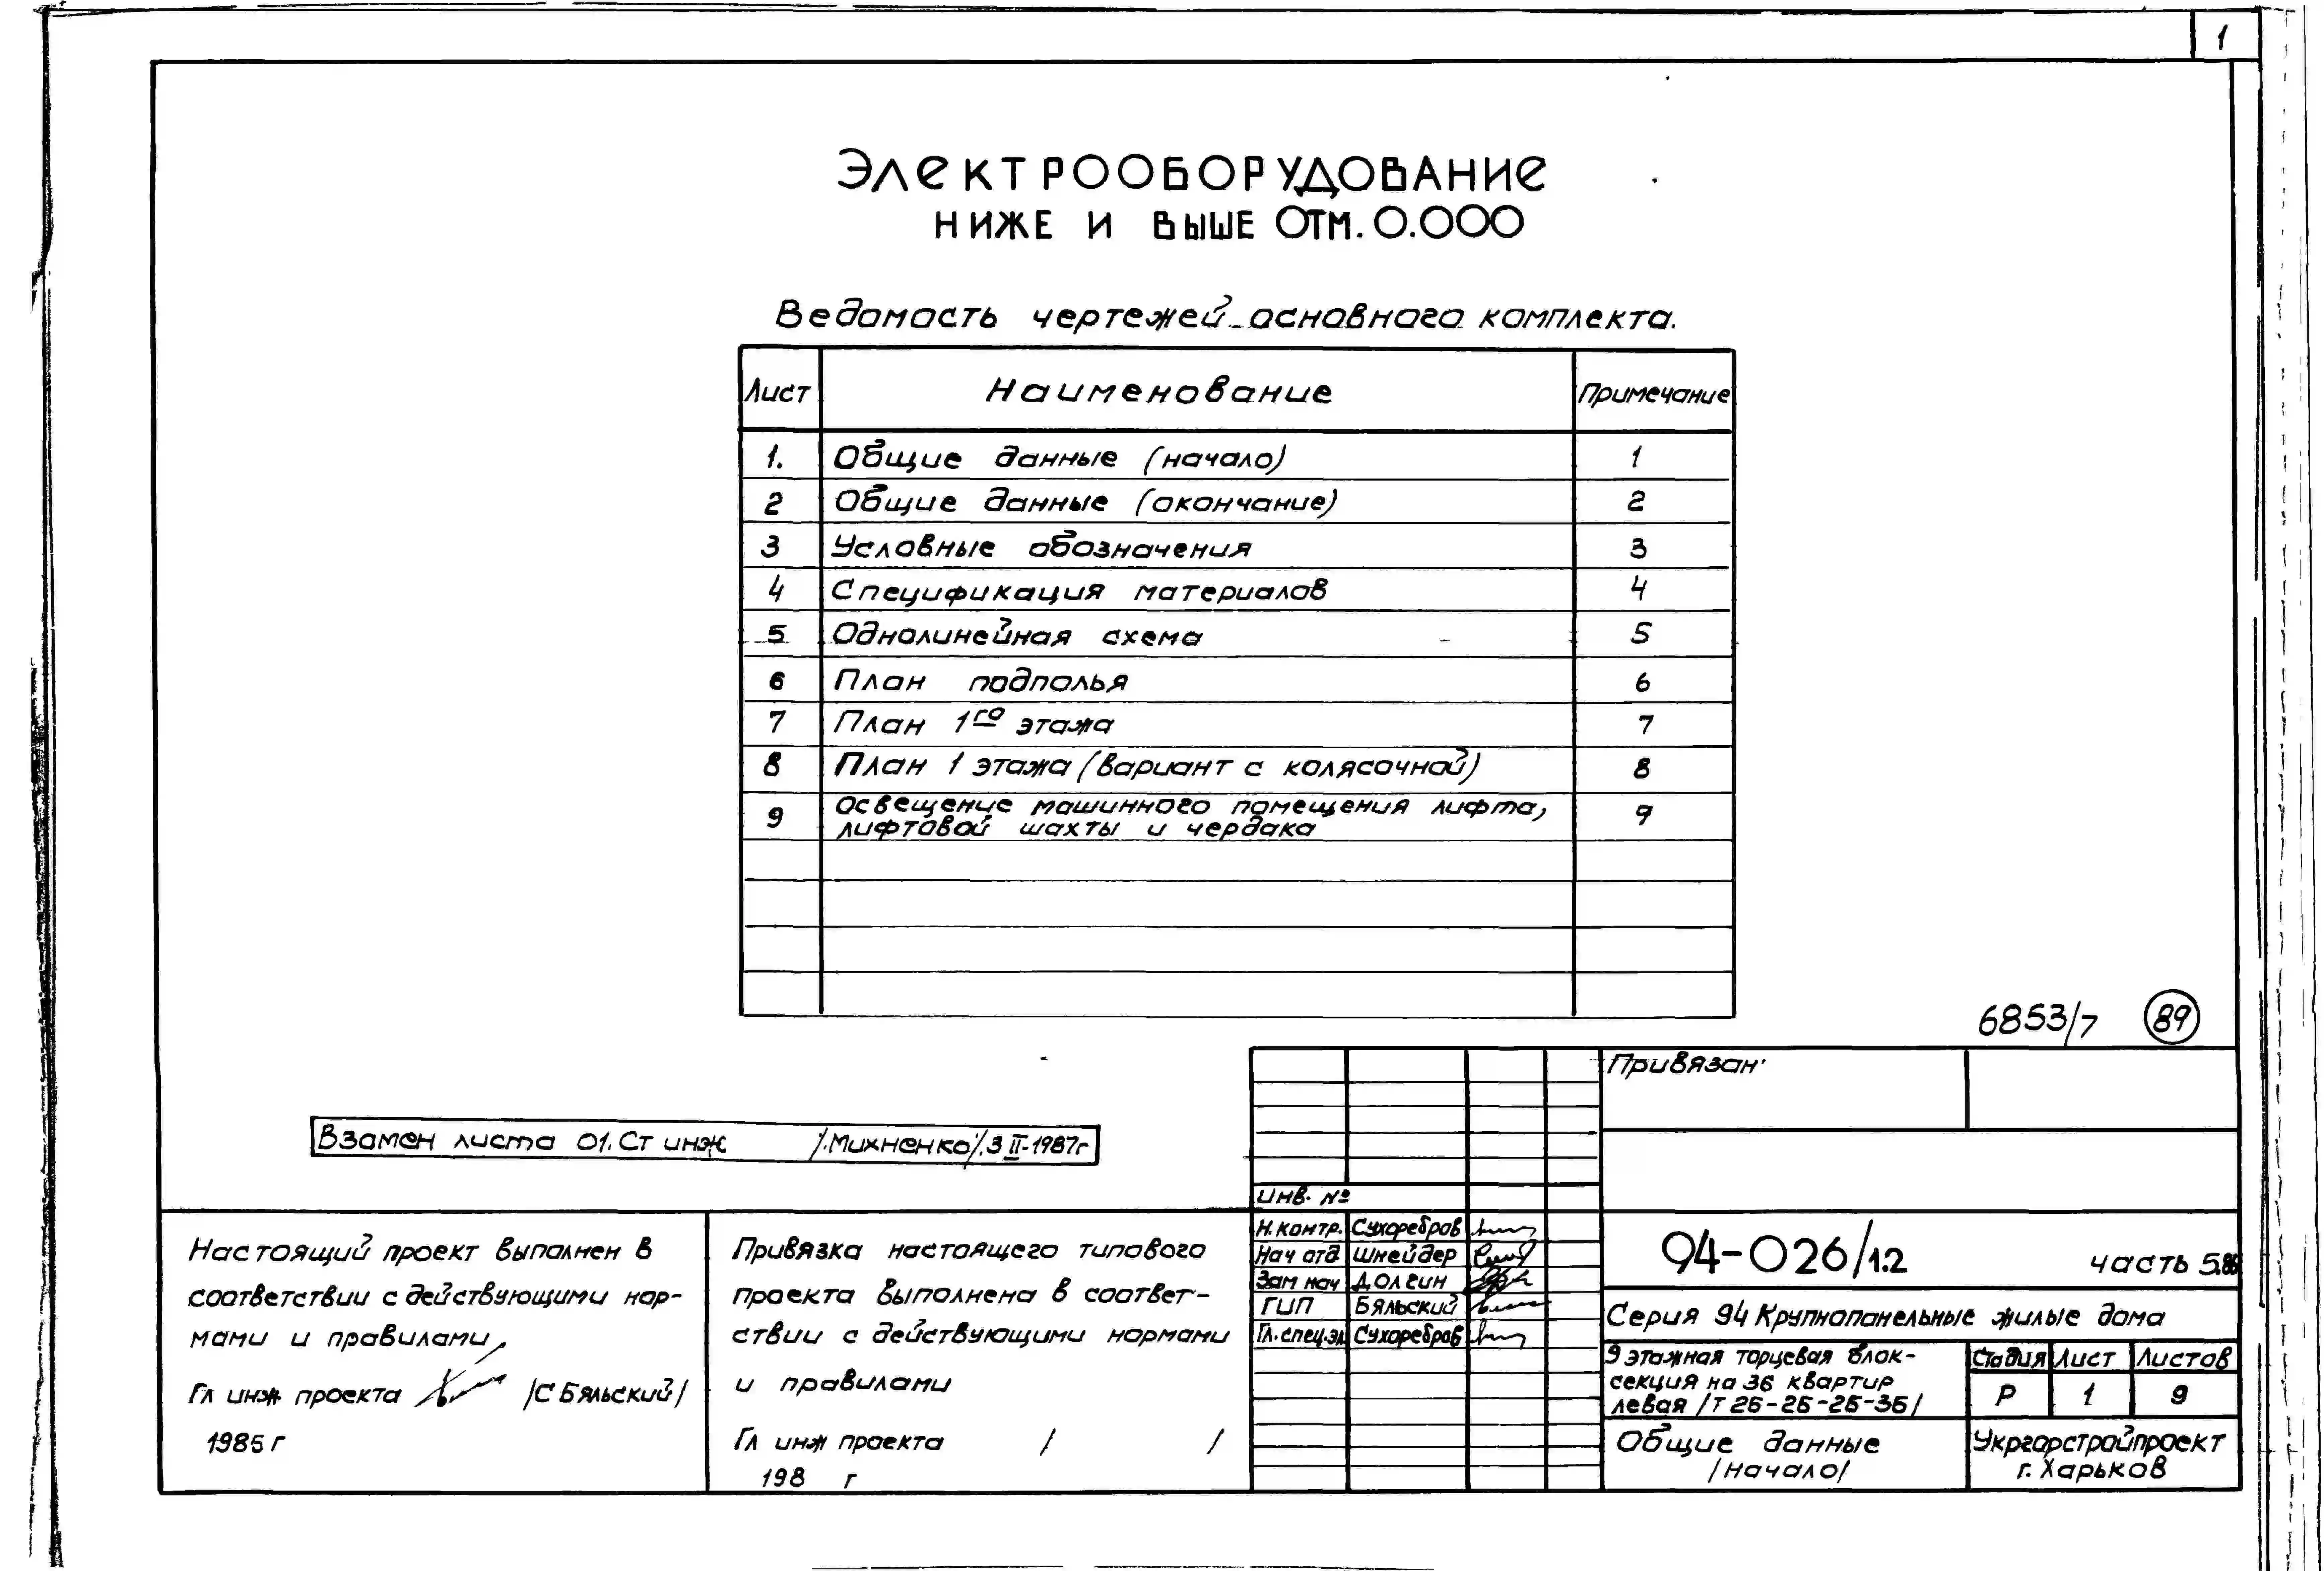 1
Электрооборудование
ниже и выше отм. 0.000
Ведомость чертежей основного комплекта.
Лист Наименование Примечание
1. Общие данные (начало) 1
2 Общие данные (окончание) 2
3 Условные обозначения 3
4 Спецификация материалов 4
5 Однолинейная схема 5
6 План подполья 6
7 План 1го этажа 7
8 План 1 этажа (вариант с колясочной) 8
9 Освещение машинного помещения лифта,
лифтовой шахты и чердака 9
6853/7 89
Взамен листа 01. Ст инж /.Михненко/.3 II-1987г
Настоящий проект выполнен в
соответствии с действующими нор-
мами и правилами.
Гл инж проекта /С Бяльский/
1985 г
Привязка настоящего типового
проекта выполнена в соответ-
ствии с действующими нормами
и правилами
Гл инж проекта / /
198 г
Инв. №
Н.контр. Сухоребров
Нач отд Шнейдер
Зам нач Долгин
ГИП Бяльский
Гл.спец.эл Сухоребров
Привязан
94-026/1.2 часть 5.86
Серия 94 Крупнопанельные жилые дома
9 этажная торцевая блок-
секция на 36 квартир
левая /Т 2Б-2Б-2Б-3Б/
Стадия Лист Листов
Р 1 9
Общие данные
/начало/
Укргорстройпроект
г. Харьков